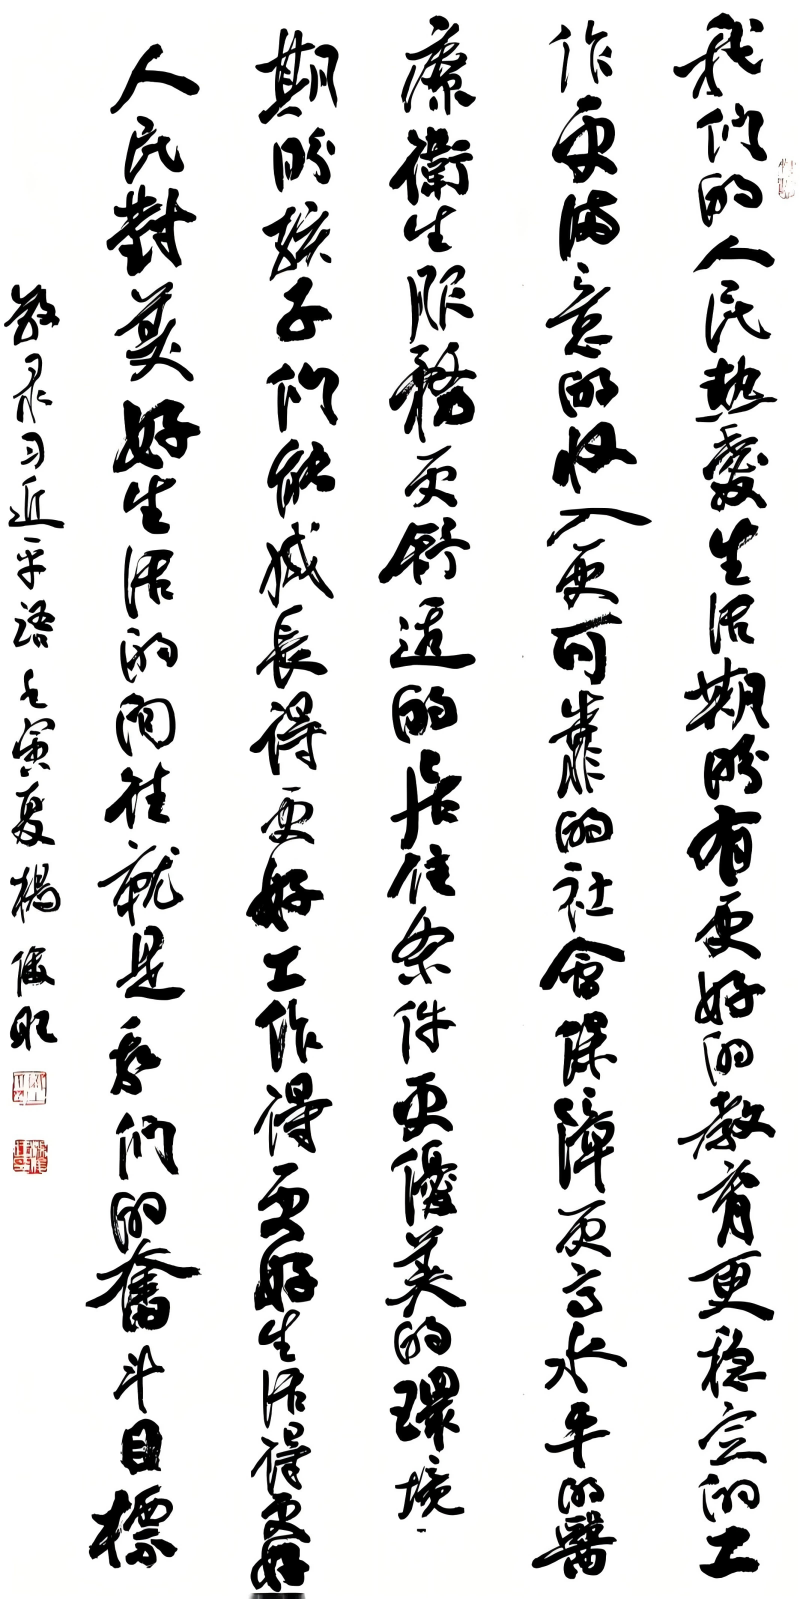 我们的人民熱愛生活期盼有更好的教育更稳定的工
作更满意的收入更可靠的社會保障更高水平的醫
療衛生服務更舒适的居住条件更優美的環境
期盼孩子们能成長得更好工作得更好生活得更好
人民對美好生活的向往就是我们的奮斗目標
敬录习近平語壬寅夏楊俊旺